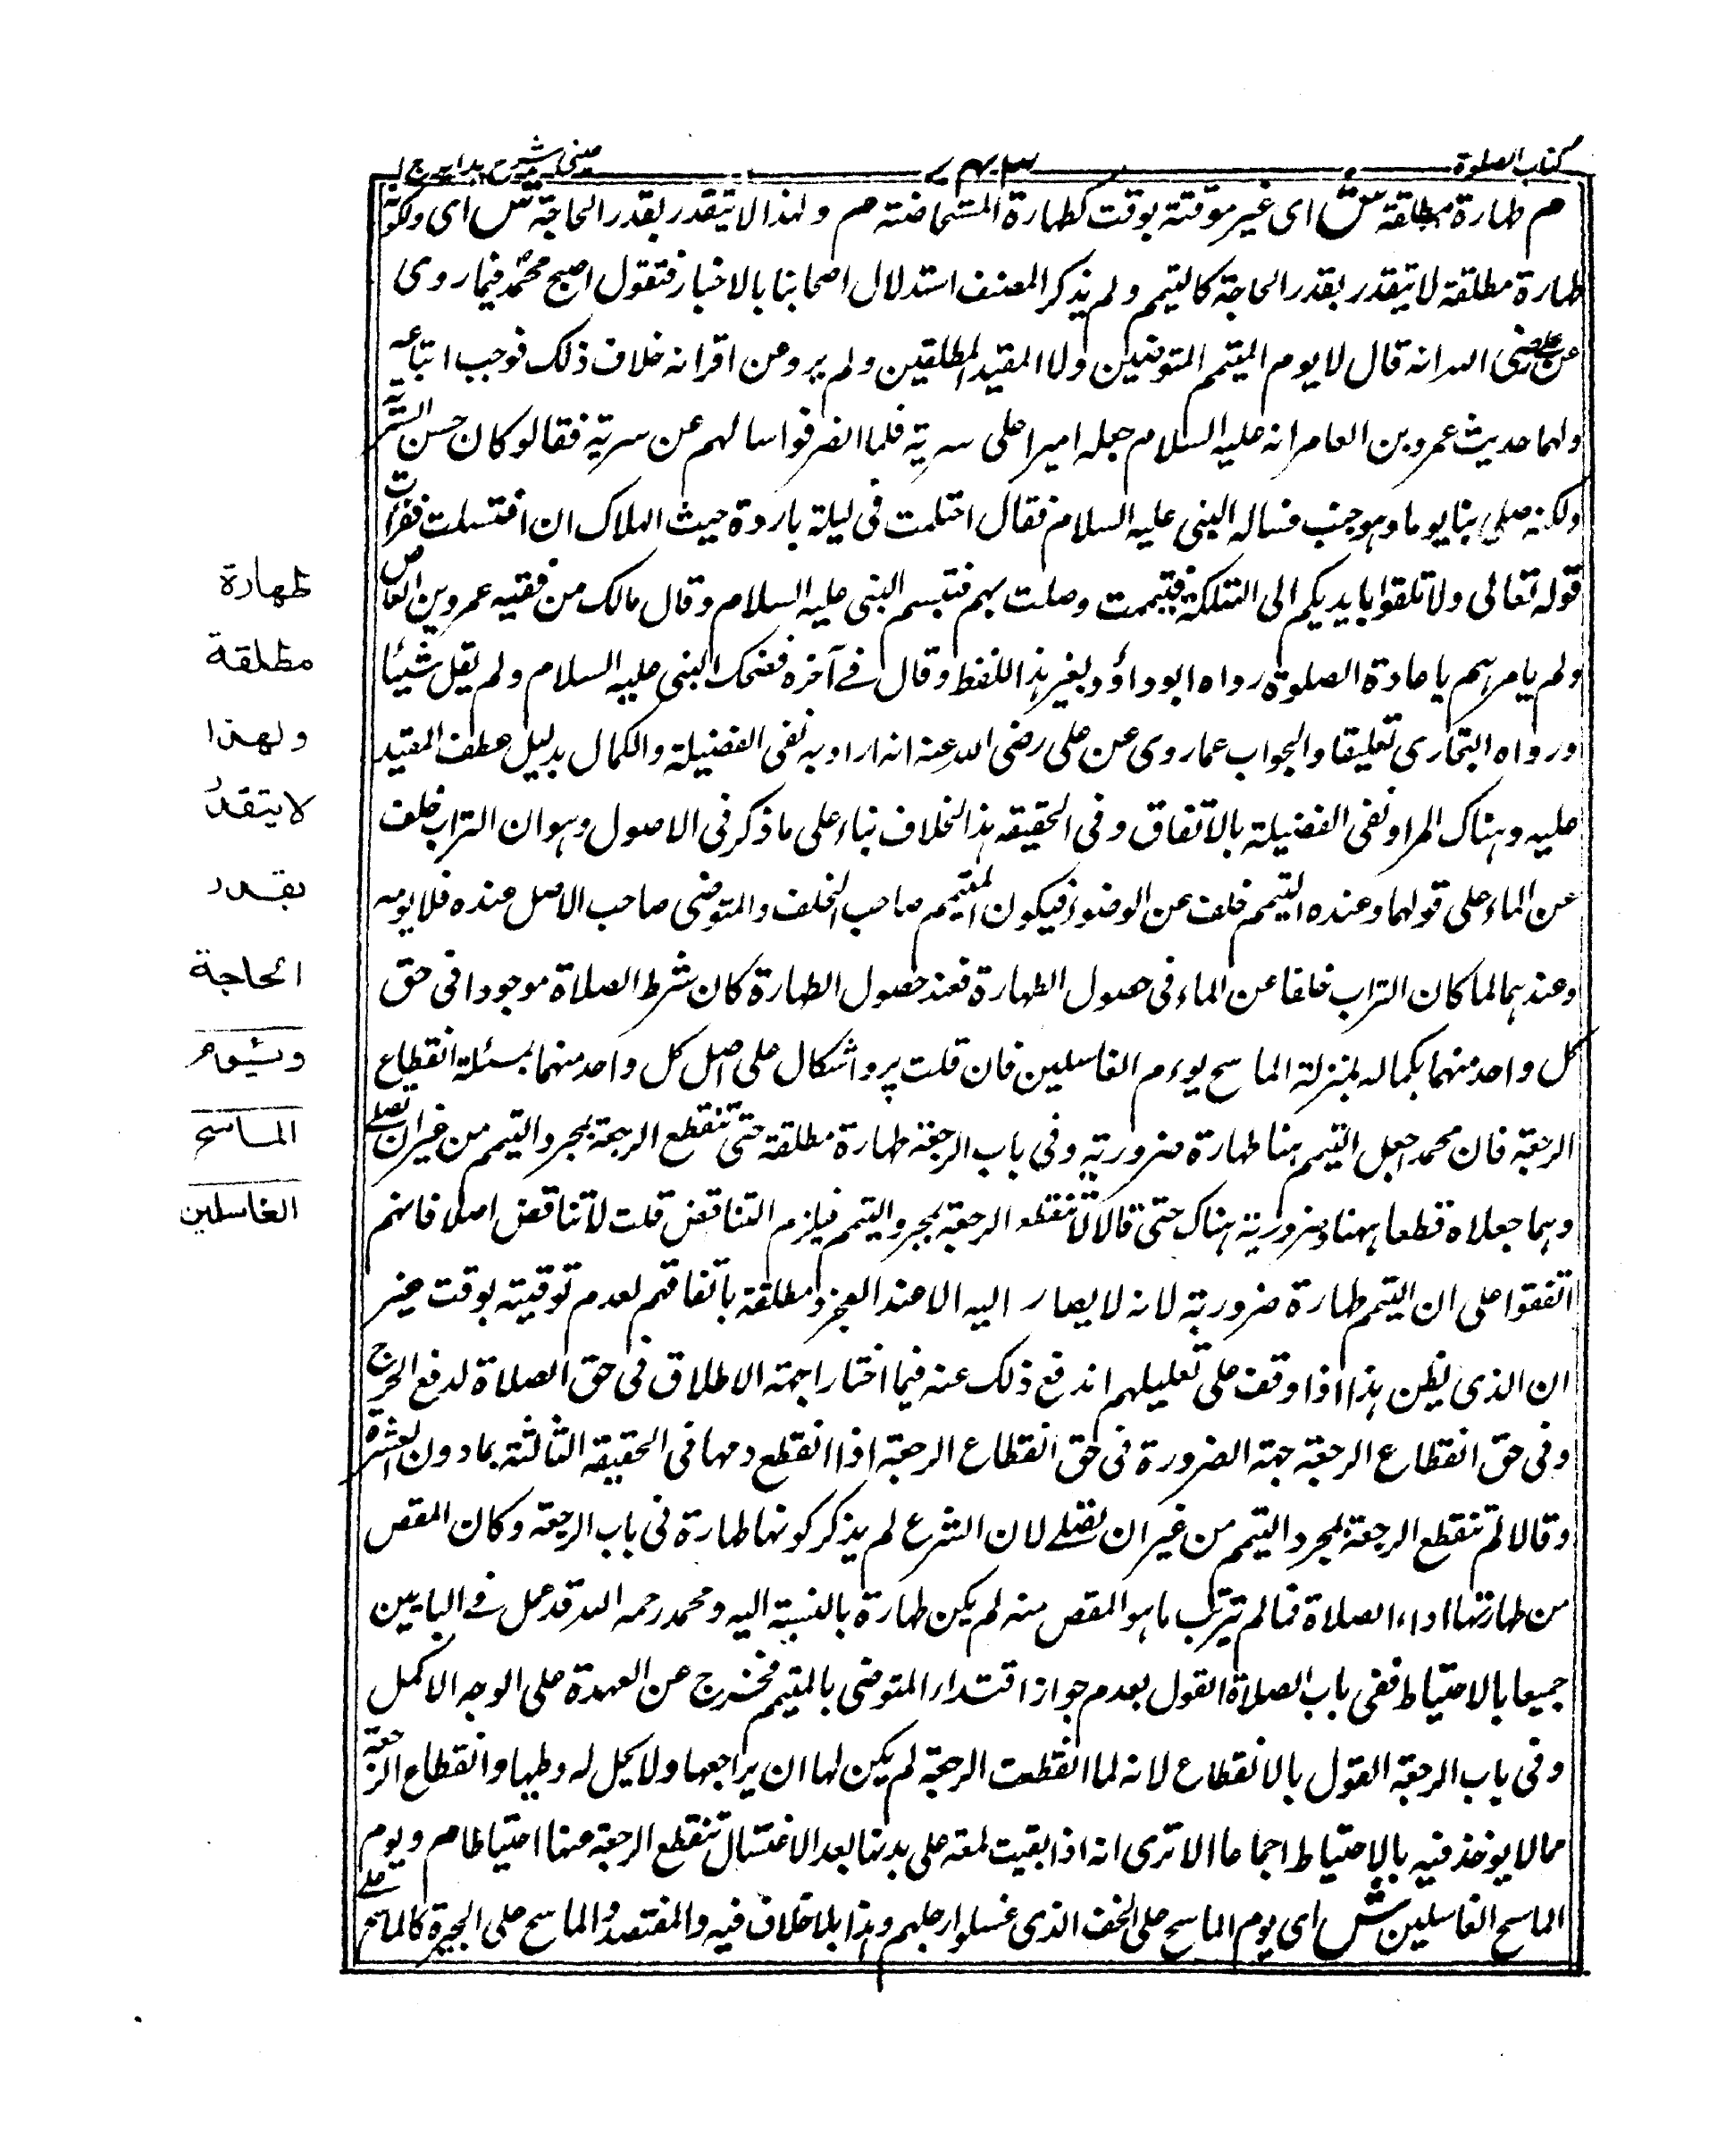 كتاب الصلوة
۷۴۳
عيني شرح هداية ج ا
م طهارة مطلقة ش اى غير موقتة بوقت كطهارة المستحاضة م ولهذا لا يتقدر بقدر الحاجة ش اى ولكونه
طهارة مطلقة لا يتقدر بقدر الحاجة كالتيمم ولم يذكر المصنف استدلال اصحابنا بالاخبار فتقول احتج محمد فيما روى
عن على رضى الله انه قال لا يوم المتيمم المتوضيين ولا المقيد المطلقين ولم يرو عن اقرانه خلاف ذلك فوجب اتباعه
ولهما حديث عمرو بن العامر انه عليه السلام جعله اميرا على سرية فلما انصرفوا سالهم عن سريته فقالو كان حسن السيرة
ولكنه صلى بنا يوما وهو جنب فساله النبى عليه السلام فقال احتلمت فى ليلة باردة حيث الهلاك ان اغتسلت فقرات
قوله تعالى ولا تلقوا بايديكم الى التهلكة فتيممت وصلت بهم فتبسم النبى عليه السلام وقال مالك من فقيه عمرو بن العاص
ولم يامرهم باعادة الصلوة رواه ابو داؤد بغير هذا اللفظ وقال فى آخره فضحك النبى عليه السلام ولم يقل شيئا
ورواه البخارى تعليقا والجواب عما روى عن على رضى الله عنه انه اراد به نفى الفضيلة والكمال بدليل عطف المقيد
عليه وهناك المراد نفى الفضيلة بالاتفاق وفى الحقيقه هذا الخلاف بناء على ما ذكر فى الاصول وهو ان التراب خلف
عن الماء على قولهما وعنده التيمم خلف عن الوضوء فيكون المتيمم صاحب الخلف والمتوضى صاحب الاصل عنده فلا يومه
وعندهما لما كان التراب خلفا عن الماء فى حصول الطهارة فعند حصول الطهارة كان شرط الصلاة موجودا فى حق
كل واحد منهما بكماله بمنزلة الماسح يوءم الغاسلين فان قلت يرد اشكال على اصل كل واحد منهما بمسئلة انقطاع
الرجعة فان محمد جعل التيمم هنا طهارة ضرورية وفى باب الرجعة طهارة مطلقة حتى تنقطع الرجعة بمجرد التيمم من غير ان تصلى
وهما جعلاه قطعا ههنا وضرورية هناك حتى قالا لا تنقطع الرجعة بمجرد التيمم فيلزم التناقض قلت لا تناقض اصلا فانهم
اتفقوا على ان التيمم طهارة ضرورية لانه لا يصار اليه الا عند العجز ومطلقة باتفاقهم لعدم توقيته بوقت غير
ان الذى يظن هذا اذا وقف على تعليلهم اندفع ذلك عنه فيما اختارا جهة الاطلاق فى حق الصلاة لدفع الحرج
وفى حق انقطاع الرجعة جهة الضرورة فى حق انقطاع الرجعة اذا انقطع دمها فى الحقيقه الثالثة بما دون العشرة
وقالا لم تنقطع الرجعة بمجرد التيمم من غير ان تصلى لان الشرع لم يذكر كونها طهارة فى باب الرجعة وكان المقص
من طهارتها اداء الصلاة فما لم يترتب ما هو المقص منه لم يكن طهارة بالنسبة اليه ومحمد رحمه الله قد عمل فى البابين
جميعا بالاحتياط ففى باب الصلاة القول بعدم جواز اقتداء المتوضى بالمتيمم فخرج عن العهدة على الوجه الاكمل
وفى باب الرجعة القول بالانقطاع لانه لما انقطعت الرجعة لم يكن لها ان يراجعها ولا يحل له وطيها وانقطاع الرجعة
مما لا يوخذ فيه بالاحتياط اجماعا الا ترى انه اذا بقيت لمعة على بدنها بعد الاغتسال تنقطع الرجعة عنها احتياطا م ويوم
الماسح الغاسلين ش اى يوم الماسح على الخف الذى غسلوا رجلهم وهذا بلا خلاف فيه والمفتصد والماسح على الجبيرة كالماسح على
طهارة
مطلقة
ولهذا
لا يتقدر
بقدر
الحاجة
ويئوم
الماسح
الغاسلين